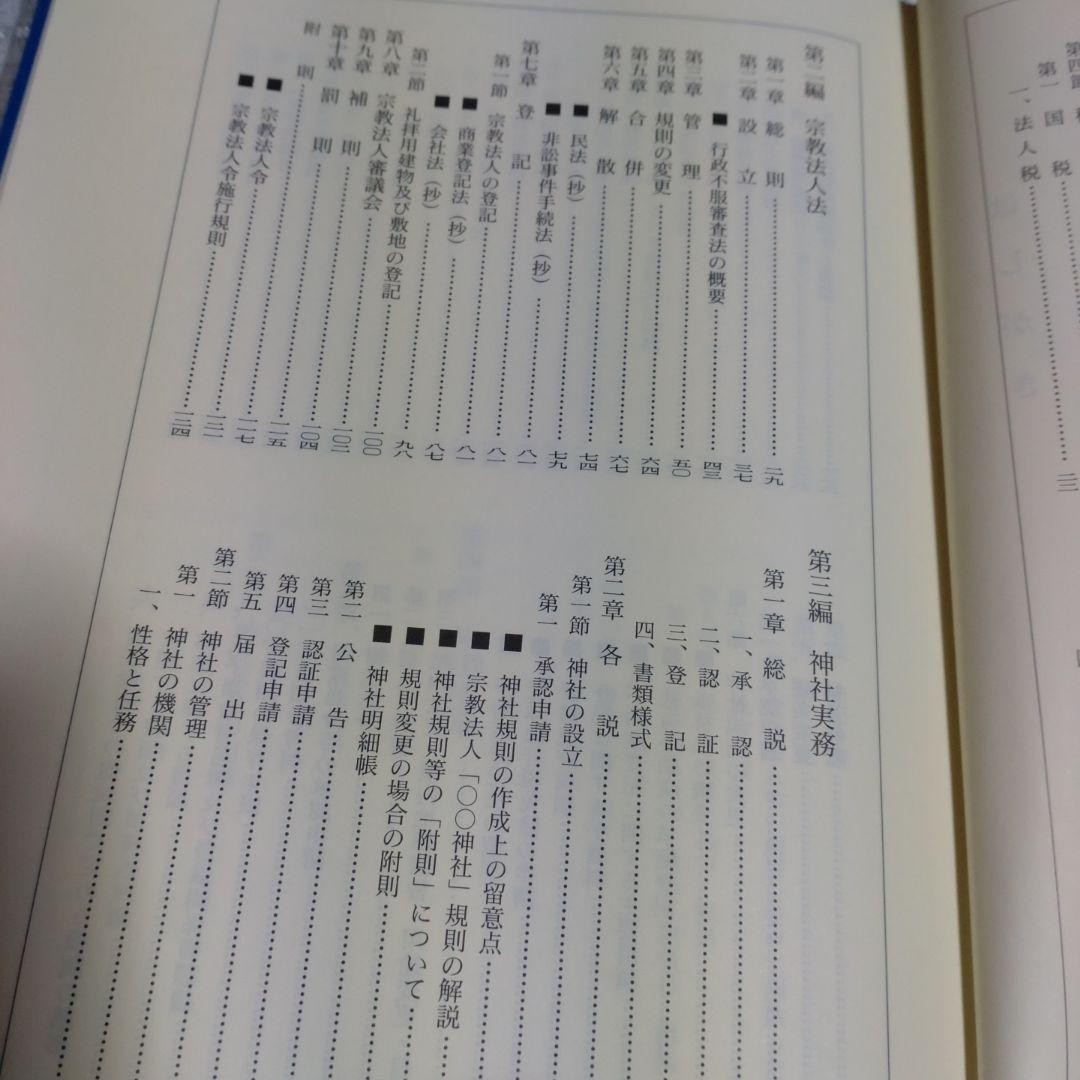 第一 国 税
一、法人税
第二編 宗教法人法
第一章 総 則……二九
第二章 設 立……三七
■ 行政不服審査法の概要……四三
第三章 管 理……五〇
第四章 規則の変更……六四
第五章 合 併……六七
第六章 解 散……七四
■ 民法(抄)……七九
■ 非訟事件手続法(抄)……八一
第七章 登 記……八一
第一節 宗教法人の登記……八一
■ 商業登記法(抄)……八七
■ 会社法(抄)……九八
第二節 礼拝用建物及び敷地の登記……一〇〇
第八章 宗教法人審議会……一〇二
第九章 補 則……一〇四
第十章 罰 則……一一五
附 則……一一七
■ 宗教法人令……一三一
■ 宗教法人令施行規則……一三四
第三編 神社実務
第一章 総 説……
一、承 認……
二、認 証……
三、登 記……
四、書類様式……
第二章 各 説……
第一節 神社の設立……
第一 承認申請……
■ 神社規則の作成上の留意点……
■ 宗教法人「〇〇神社」規則の解説……
■ 神社規則等の「附則」について……
■ 規則変更の場合の附則……
■ 神社明細帳……
第二 公 告……
第三 認証申請……
第四 登記申請……
第五 届 出……
第二節 神社の管理……
第一 神社の機関……
一、性格と任務……